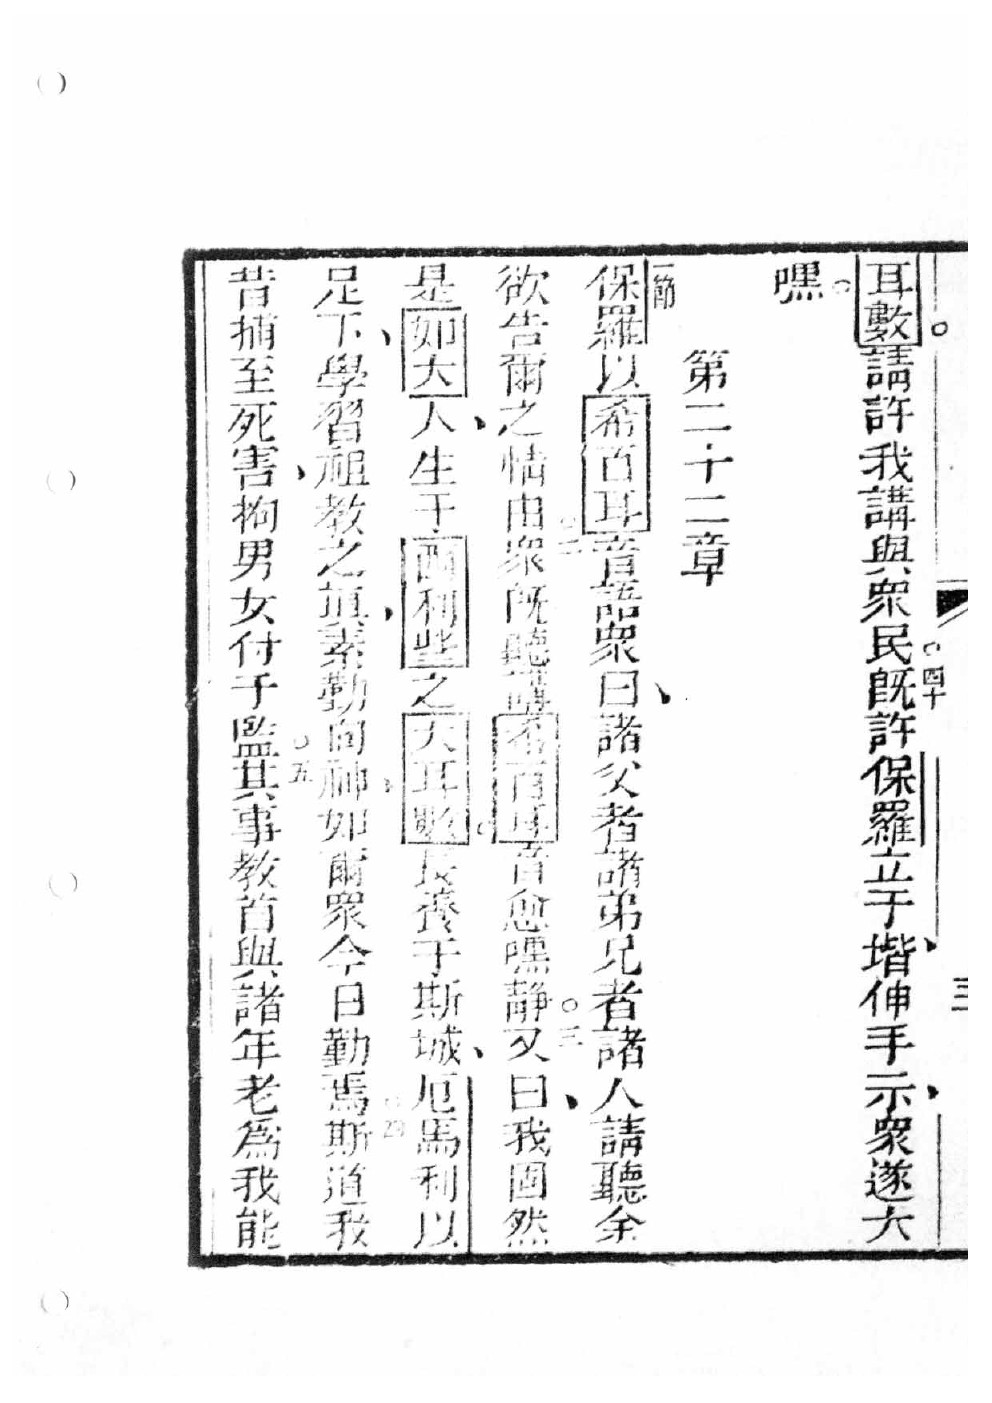 耳數請許我講與衆民四十既許保羅立于堦伸手示衆遂大
嘿
三
第二十二章
一節保羅以希百耳音語衆曰諸父者諸弟兄者諸人請聽余
欲告爾之情由二衆既聽講希百耳音愈嘿靜三又曰我固然
是如大人生于西利些之大耳數長養于斯城厄馬利以
足下學習祖教之塡素勤向神如爾衆今日勤焉四斯道我
昔捕至死害拘男女付于監五其事教首與諸年老爲我能